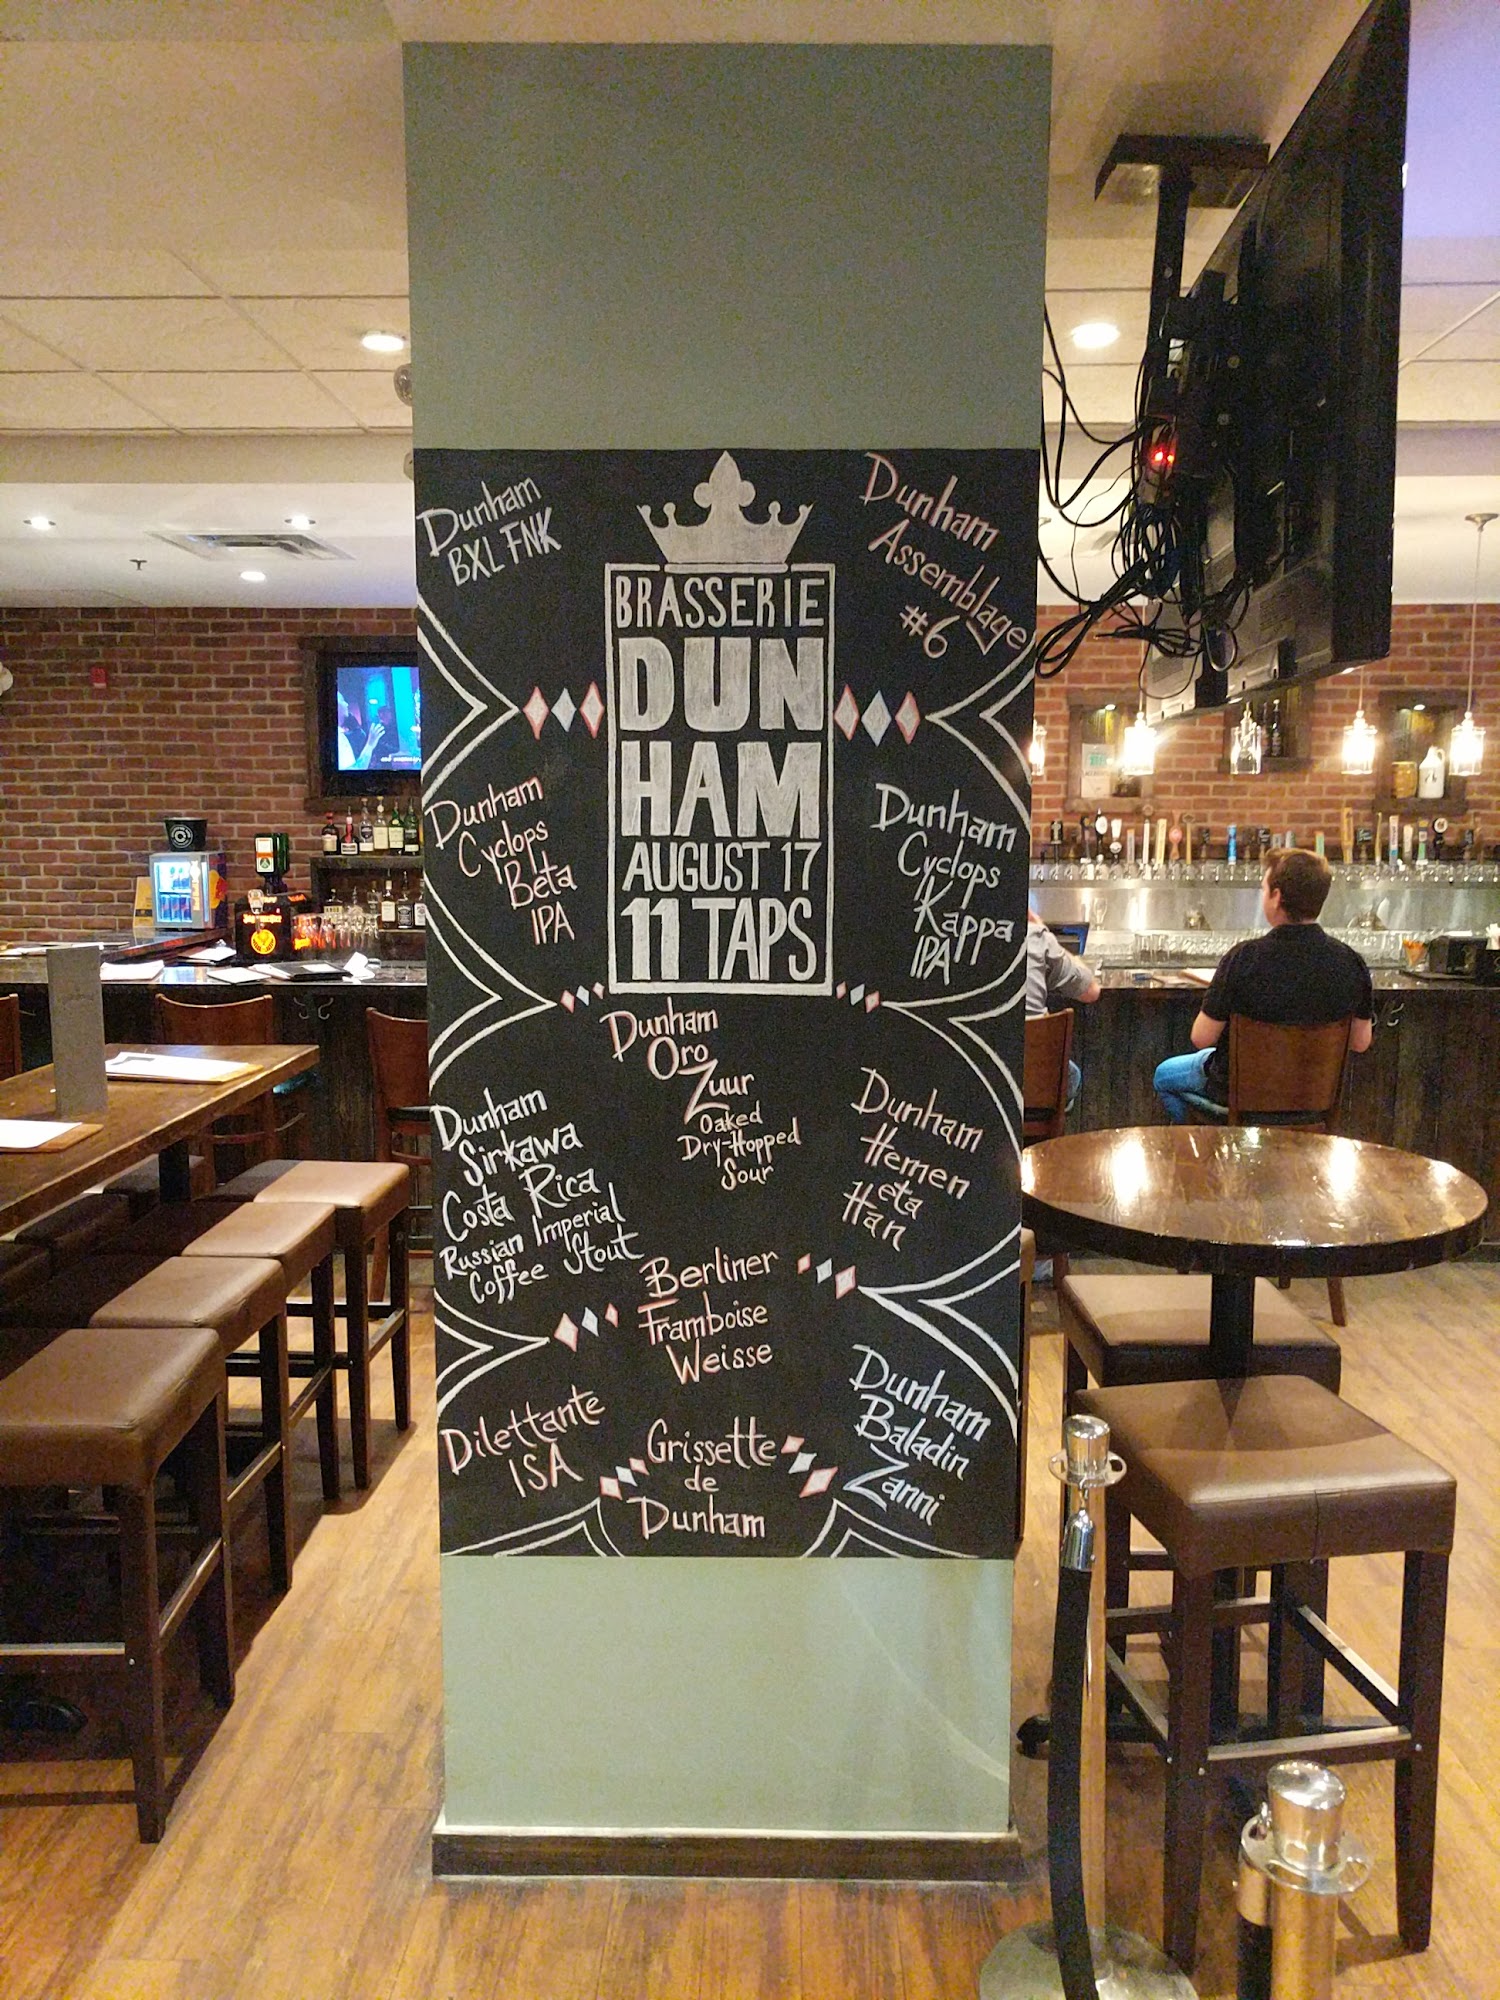 Dunham
BXL FNK
BRASSERIE
DUN
HAM
AUGUST 17
11 TAPS
Dunham
Assemblage
#6
Dunham
Cyclops
Beta
IPA
Dunham
Cyclops
Kappa
IPA
Dunham
Oro
Zuur
Oaked
Dry-Hopped
Sour
Dunham
Sirkawa
Costa Rica
Russian Imperial
Coffee Stout
Dunham
Hemen
eta
Han
Berliner
Framboise
Weisse
Dilettante
ISA
Grissette
de
Dunham
Dunham
Baladin
Zanni